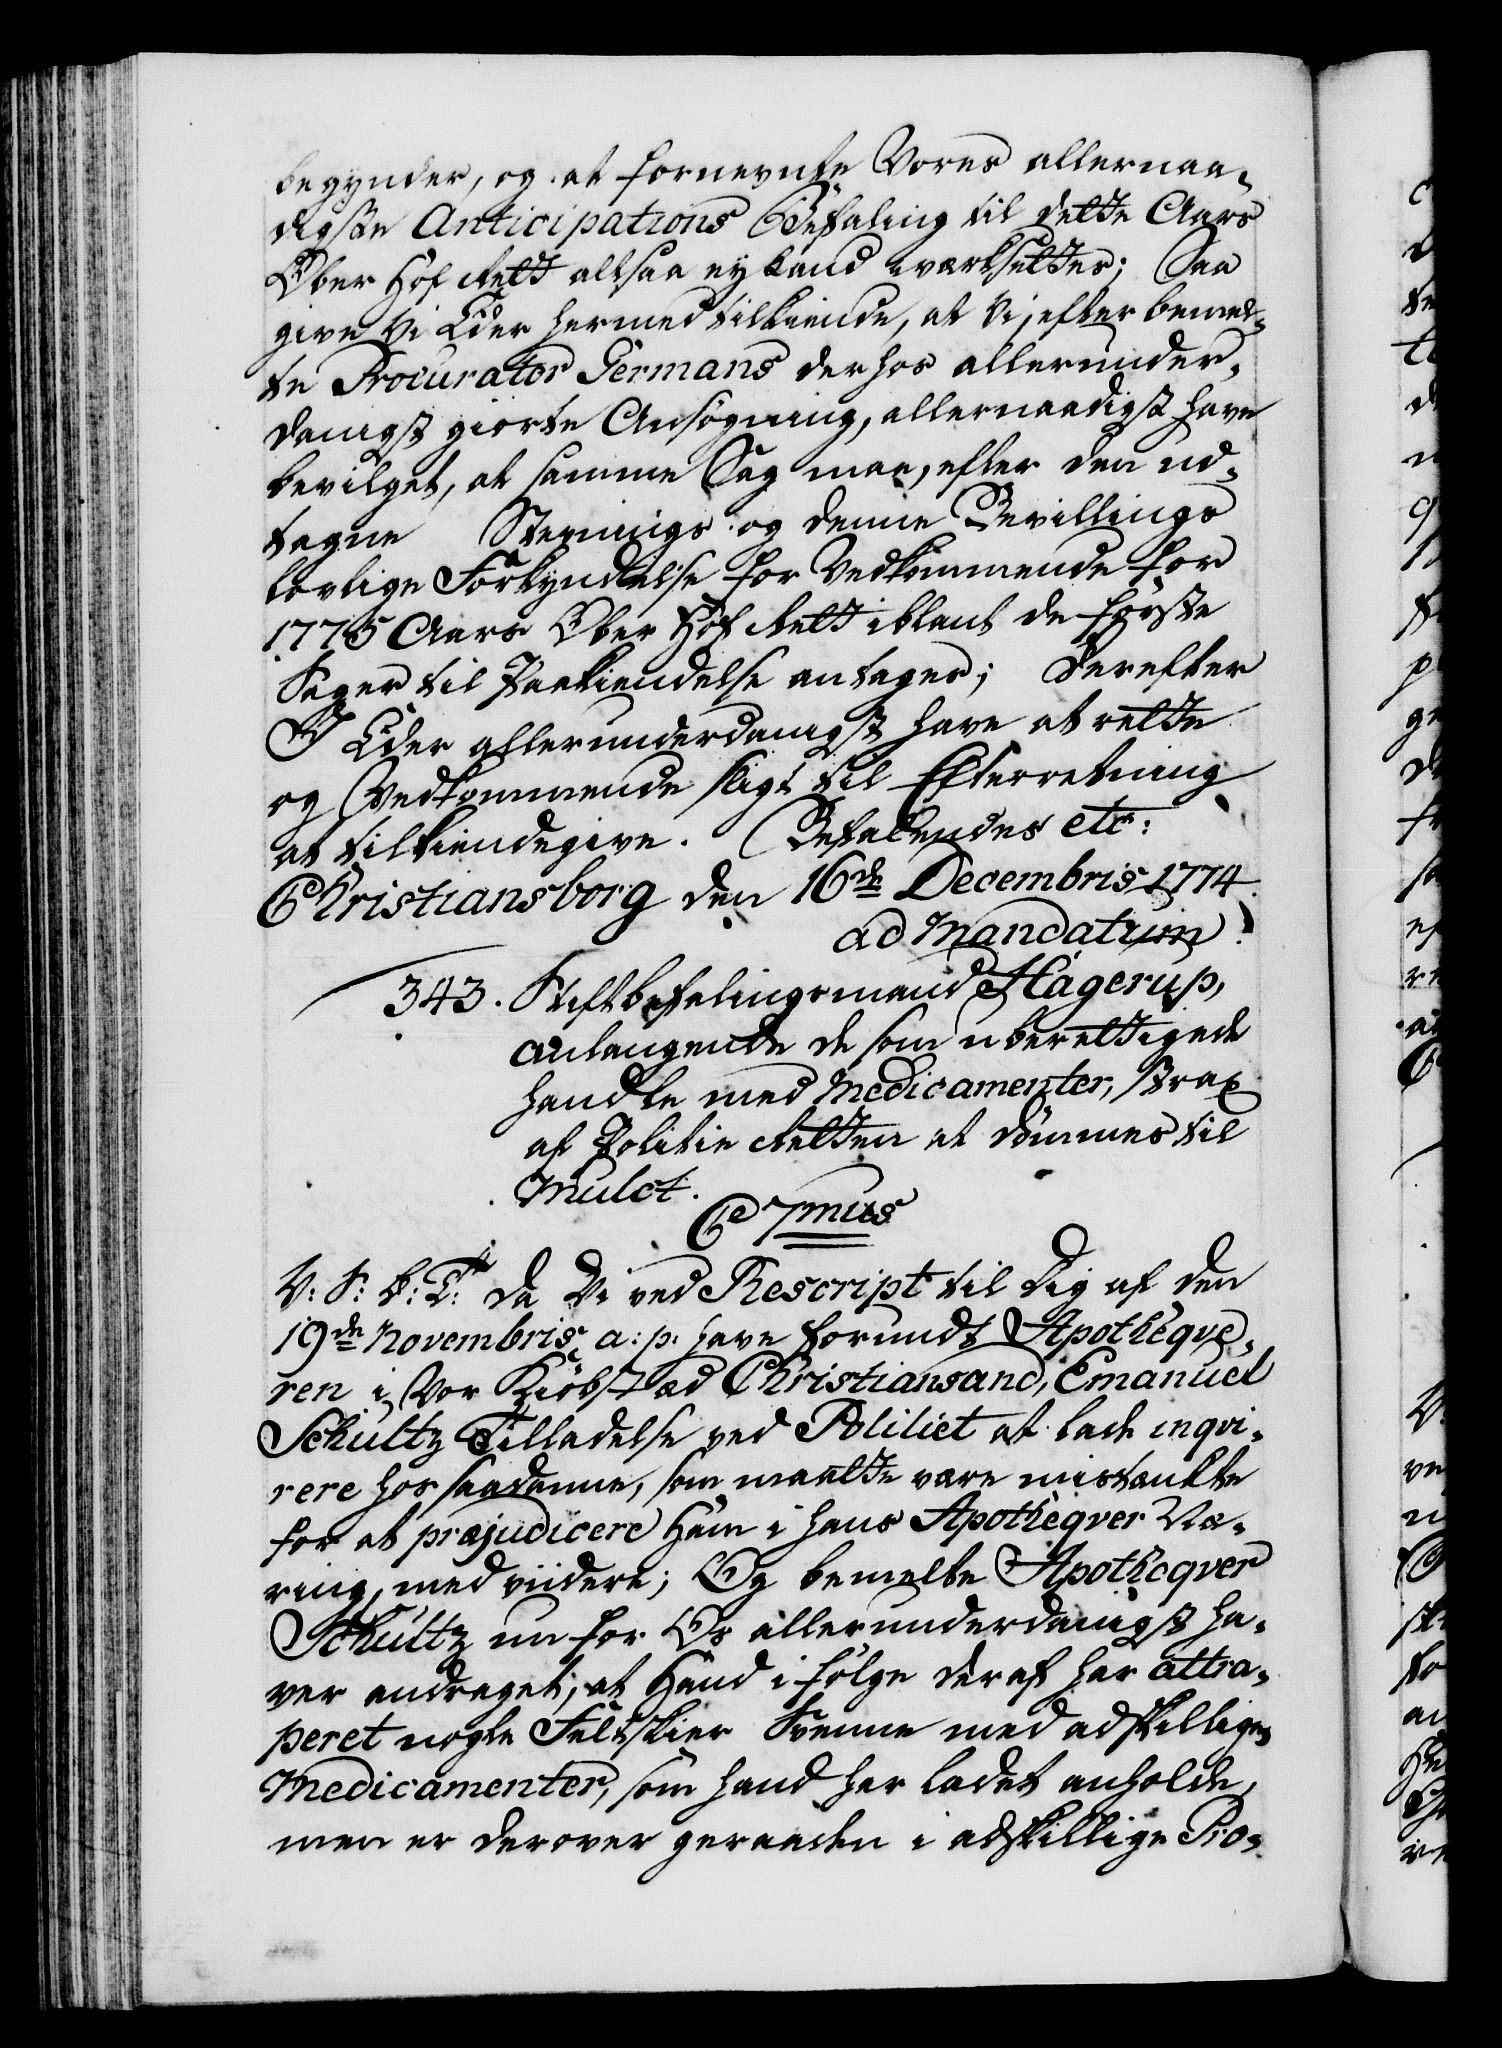 begynder, og at fornevnte Vores allernaa-
digste Anticipations Befaling til dette Aars
Ober Hof Rett altsaa ey kand iværksettes; Saa
give Vi Eder hermed tilkiende, at Vi, efter bemel-
te Procurator Germans derhos allerunder-
danigst giorte Ansøgning, allernaadigst have
bevilget, at samme Sag maa, efter den ud-
tagne Stevnings og denne Bevillings
lovlige Forkyndelse for Vedkommende for
1775 Aars Ober Hof Rett iblant de første
Sager til Paakiendelse antages; Derefter
I Eder allerunderdanigst have at rette
og Vedkommende sligt til Efterretning
at tilkiendegive. Befalendes etc:
Christiansborg den 16de Decembris 1774.
ad Mandatum.
343. Stiftbefalingsmand Hagerup,
anlangende de som uberettigede
handle med Medicamenter, strax
af Politie Retten at dømmes til
Mulct.
C 7mus
V: S: B: T: Da Vi ved Rescript til Dig af den
19de Novembris a: p: have forundt Apotheqve-
ren i Vor Kiøbstæd Christiansand, Emanuel
Schultz Tilladelse ved Politiet at lade inqvi-
rere hos saadanne, som maatte være mistænkte
for at præjudicere Ham i hans Apotheqver Næ-
ring, med viidere; Og bemelte Apotheqver
Schultz nu for Os allerunderdanigst ha-
ver andraget, at Hand i følge deraf har attra-
peret nogle Feltskier Svenne med adskillige
Medicamenter, som hand har ladet anholde,
men er derover geraaden i adskillige Pro-